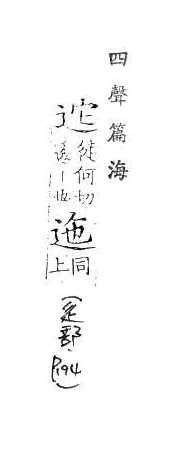 四聲篇海
迱徒何切
逶｜也
迆同
上
(辵部·P194)